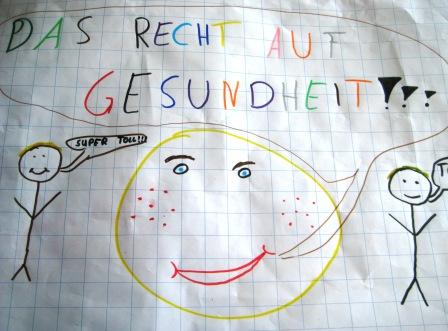 DAS RECHT AUF
GESUNDHEIT!!!
SUPER TOLL!!!